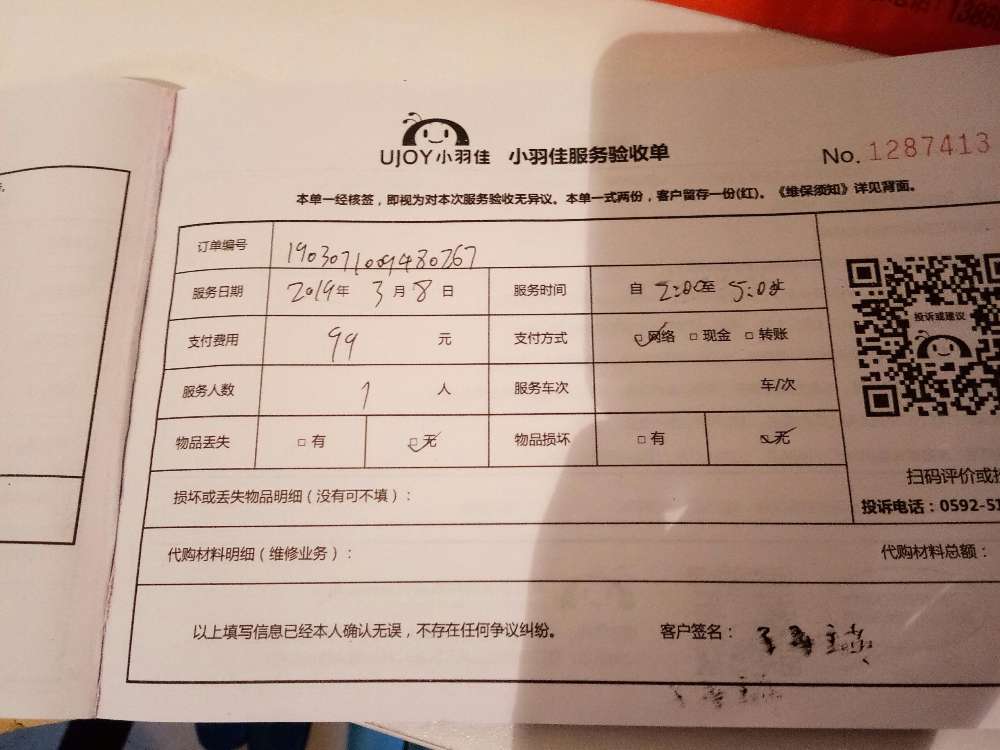 UJOY小羽佳 小羽佳服务验收单 No. 1287413
本单一经核签，即视为对本次服务验收无异议。本单一式两份，客户留存一份(红)。《维保须知》详见背面。
订单编号 190307109480267
服务日期 2019年 3月8日 服务时间 自 2:00至 5:00止
支付费用 99 元 支付方式 □网络 □现金 □转账
服务人数 1 人 服务车次 车/次
物品丢失 □有 □无 物品损坏 □有 □无
投诉或建议
扫码评价或投
投诉电话：0592-51
损坏或丢失物品明细（没有可不填）：
代购材料明细（维修业务）： 代购材料总额：
以上填写信息已经本人确认无误，不存在任何争议纠纷。 客户签名：